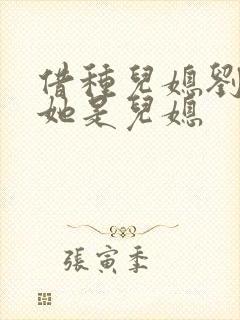 借種兒媳劉
她是兒媳
張寅季